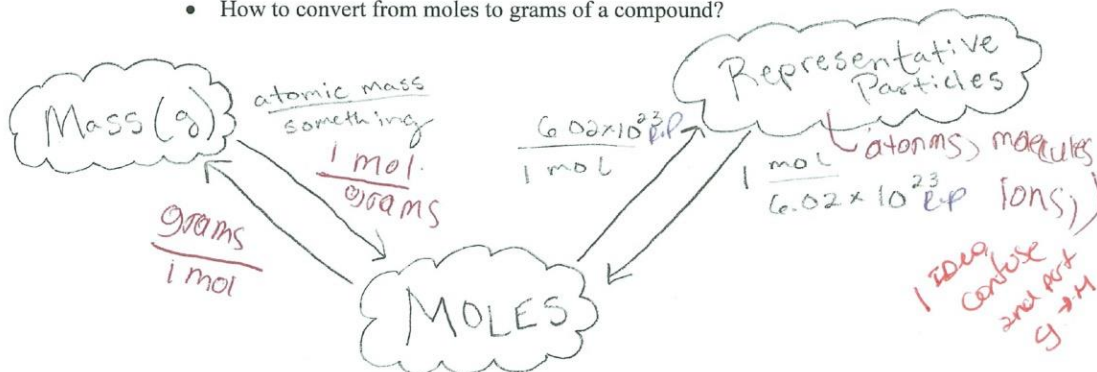 • How to convert from moles to grams of a compound?
Mass (g)
atomic mass
something
1 mol.
grams
grams
1 mol
MOLES
6.02×10²³ R.P
1 mol
1 mol
6.02×10²³ R.P
Representative
Particles
atonms, molecules
ions,
1 IDea
confuse
2nd part
g → M